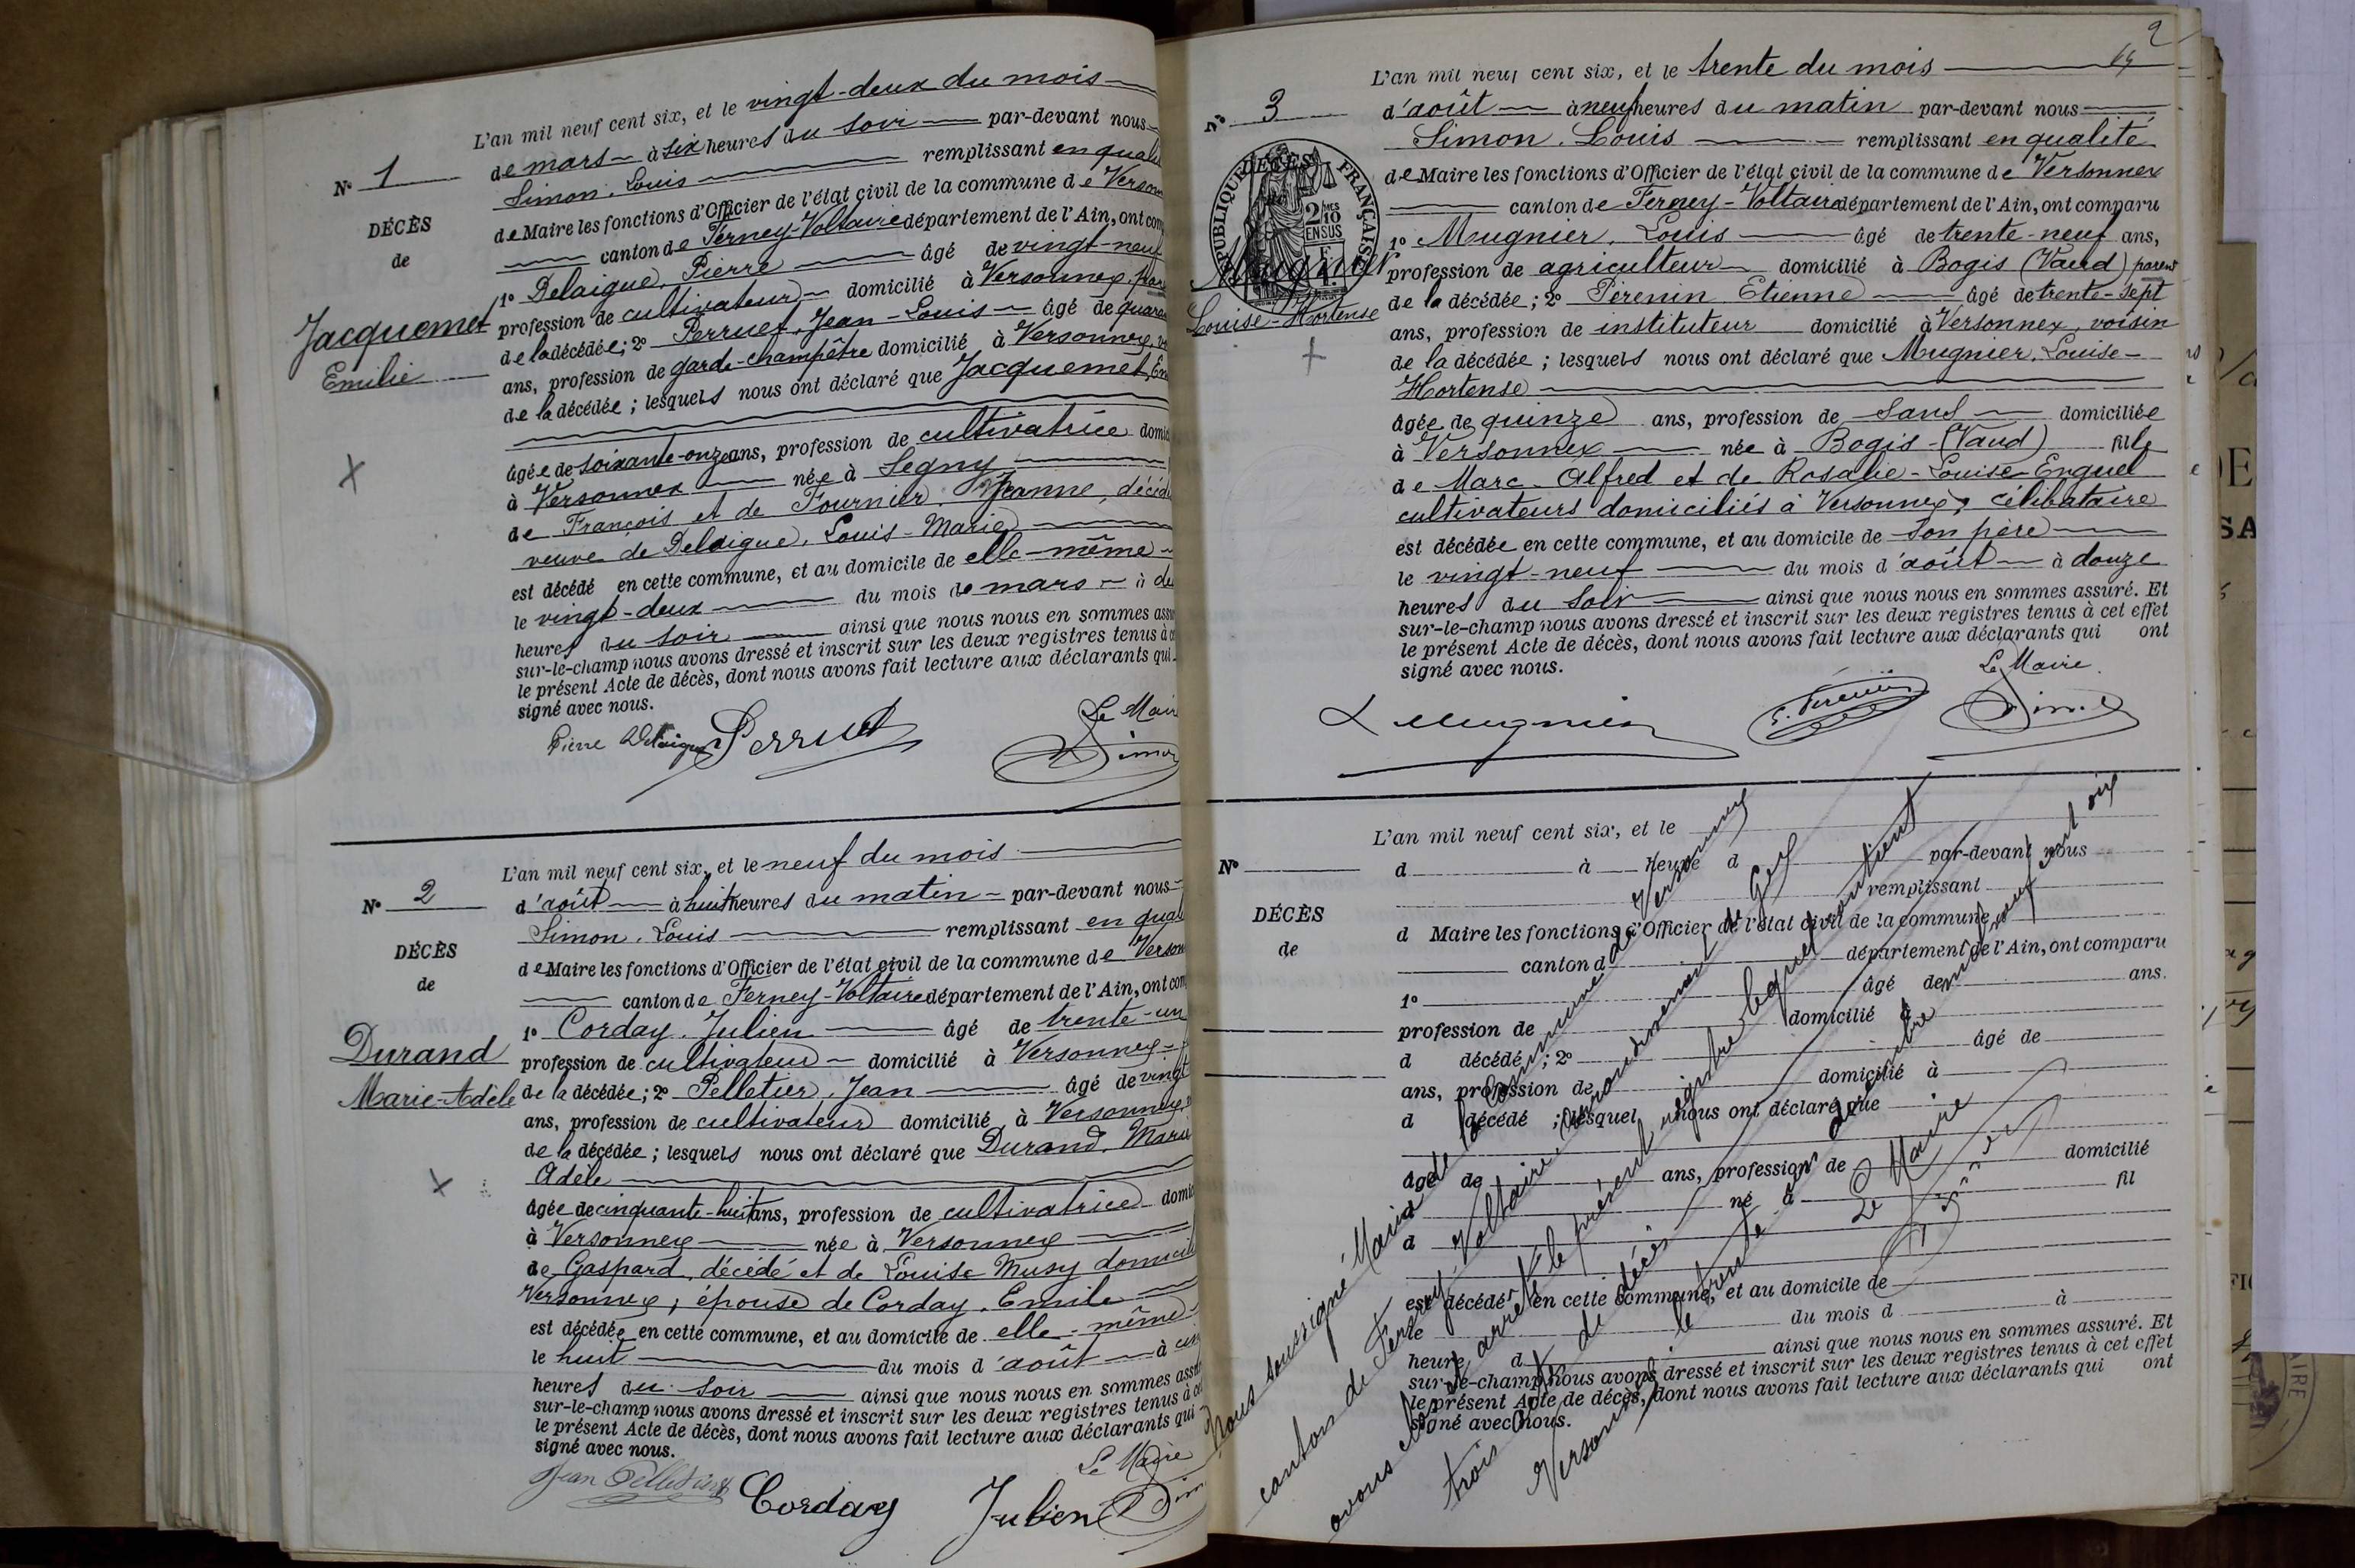 L'an mil neuf cent six, et le vingt-deux du mois
de mars à six heures du soir par-devant nous
Simon, Louis remplissant en
de Maire les fonctions d'Officier de l'état civil de la commune de
canton de Ferney-Voltaire département de l'Ain, ont
1º Delaigue, Pierre âgé de vingt-neuf
profession de cultivateur domicilié à Versonnex
de la décédée; 2º Perruet, Jean-Louis âgé de
ans, profession de garde-champêtre domicilié à Versonnex,
de la décédée; lesquels nous ont déclaré que Jacquemet,
âgée de soixante-onze ans, profession de cultivatrice
à Versonnex née à Segny
de François et de Fournier, Jeanne,
veuve de Delaigue, Louis-Marie
est décédé en cette commune, et au domicile de elle-même
le vingt-deux du mois de mars à
heures du soir ainsi que nous nous en sommes
sur-le-champ nous avons dressé et inscrit sur les deux registres tenus à
le présent Acte de décès, dont nous avons fait lecture aux déclarants qui
signé avec nous.
Nº 1
DÉCÈS
de
Jacquemet
Emilie
Pierre Delaigue Perruet Le Maire
Simon
L'an mil neuf cent six, et le neuf du mois
d'août à huit heures du matin par-devant nous
Simon, Louis remplissant en
de Maire les fonctions d'Officier de l'état civil de la commune de
canton de Ferney-Voltaire département de l'Ain, ont
1º Corday, Julien âgé de trente-un
profession de cultivateur domicilié à Versonnex
de la décédée; 2º Pelletier, Jean âgé de vingt
ans, profession de cultivateur domicilié à Versonnex
de la décédée; lesquels nous ont déclaré que Durand, Marie
Adèle
âgée de cinquante-huit ans, profession de cultivatrice
à Versonnex née à Versonnex
de Gaspard, décédé et de Louise Musy
Versonnex, épouse de Corday, Emile
est décédée en cette commune, et au domicile de elle-même
le huit du mois d'août à
heures du soir ainsi que nous nous en sommes
sur-le-champ nous avons dressé et inscrit sur les deux registres tenus à
le présent Acte de décès, dont nous avons fait lecture aux déclarants qui
signé avec nous.
Nº 2
DÉCÈS
de
Durand
Marie-Adèle
Le Maire
Jean Pelletier Corday Julien
2
L'an mil neuf cent six, et le trente du mois
d'août à neuf heures du matin par-devant nous
Simon, Louis remplissant en qualité
de Maire les fonctions d'Officier de l'état civil de la commune de Versonnex
canton de Ferney-Voltaire département de l'Ain, ont comparu
1º Mugnier, Louis âgé de trente-neuf ans,
profession de agriculteur domicilié à Bogis (Vaud) parent
de la décédée; 2º Pérenin Etienne âgé de trente-sept
ans, profession de instituteur domicilié à Versonnex, voisin
de la décédée; lesquels nous ont déclaré que Mugnier, Louise-
Hortense
âgée de quinze ans, profession de sans domiciliée
à Versonnex née à Bogis-(Vaud) fille
de Marc-Alfred et de Rosalie-Louise Enguel
cultivateurs domiciliés à Versonnex, célibataire
est décédée en cette commune, et au domicile de son père
le vingt-neuf du mois d'août à douze
heures du soir ainsi que nous nous en sommes assuré. Et
sur-le-champ nous avons dressé et inscrit sur les deux registres tenus à cet effet
le présent Acte de décès, dont nous avons fait lecture aux déclarants qui ont
signé avec nous.
Nº 3
DÉCÈS
RÉPUBLIQUE FRANÇAISE
Mugnier
Louise-Hortense
Le Maire
L Mugnier E. Pérenin Simon
L'an mil neuf cent six, et le
d à heure d par-devant nous
remplissant
d Maire les fonctions d'Officier de l'état civil de la commune
canton d département de l'Ain, ont comparu
1º âgé de ans.
profession de domicilié à
d décédé; 2º âgé de
ans, profession de domicilié à
d décédé; lesquel nous ont déclaré que
âgé de ans, profession de domicilié
à né à fil
d
est décédé en cette commune, et au domicile de
le du mois d à
heure d ainsi que nous nous en sommes assuré. Et
sur-le-champ nous avons dressé et inscrit sur les deux registres tenus à cet effet
le présent Acte de décès, dont nous avons fait lecture aux déclarants qui ont
signé avec nous.
Nº
DÉCÈS
de
Nous soussigné Maire de la commune de Versonnex
canton de Ferney-Voltaire arrondissement de Gex
avons clos et arrêté le présent registre lequel contient
trois actes de décès
Versonnex le trente un décembre mil neuf cent six
Le Maire
Simon